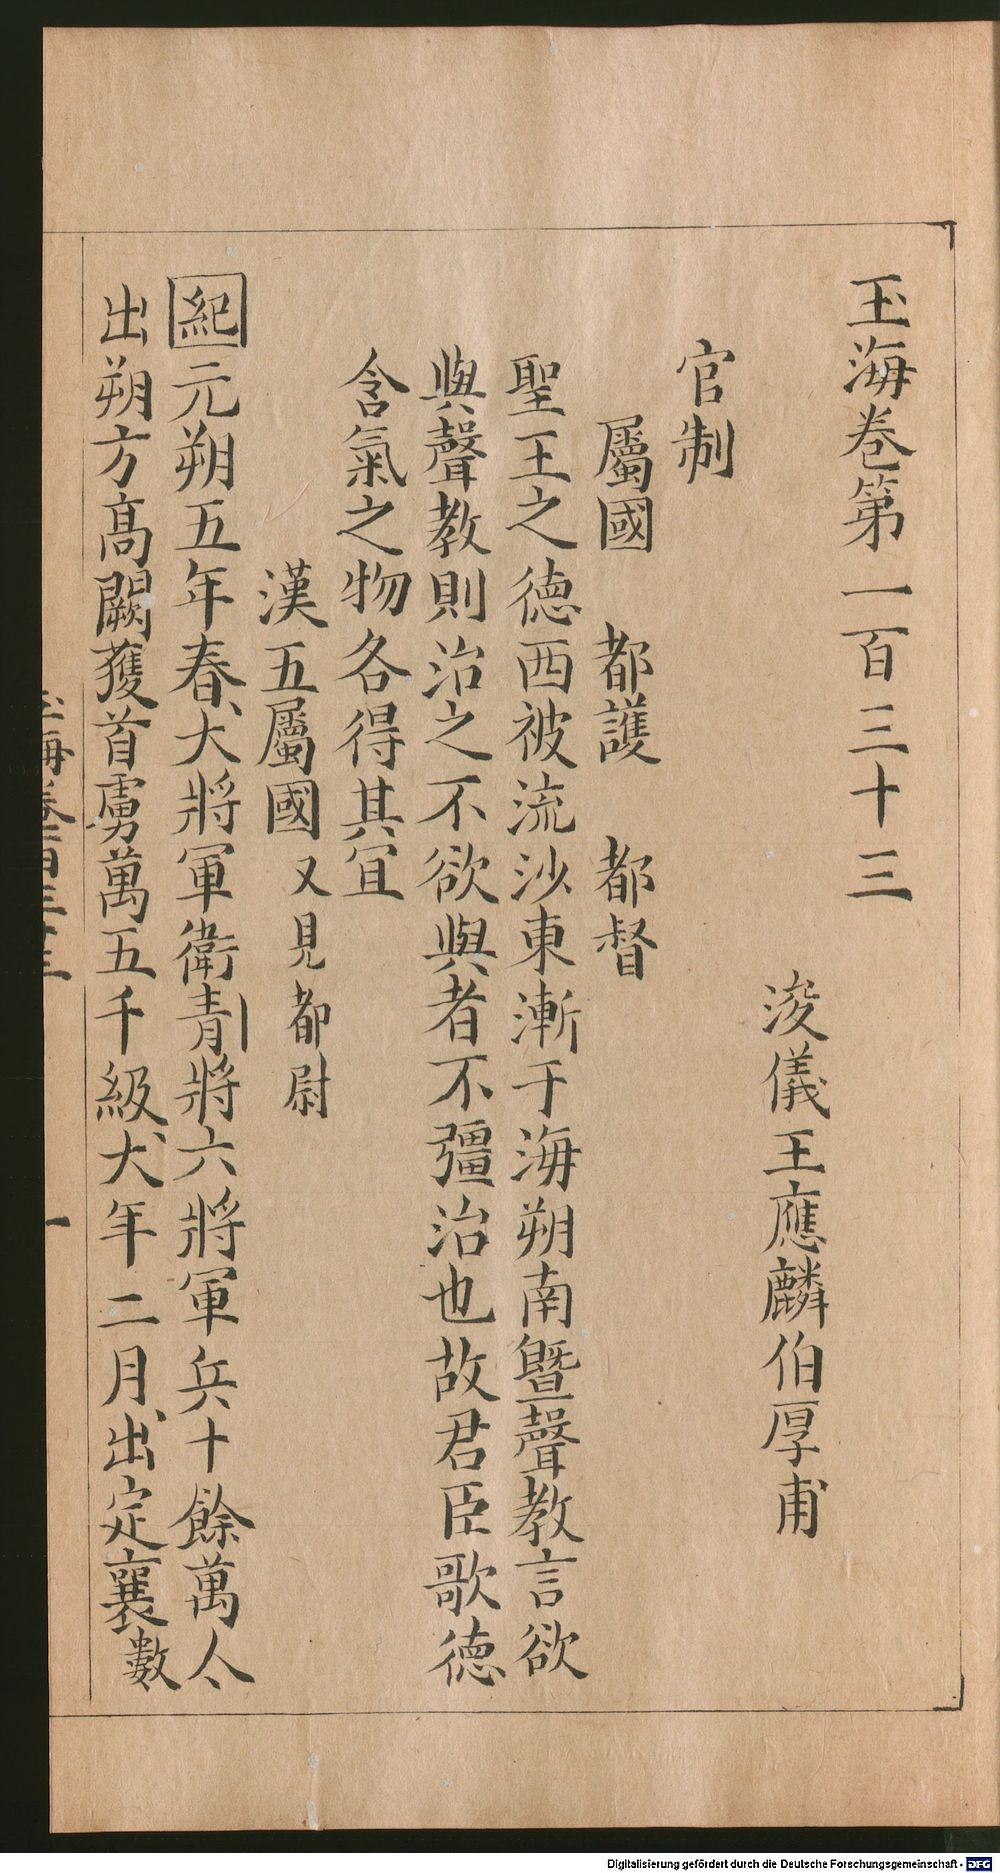 玉海卷第一百三十三
浚儀王應麟伯厚甫
官制
屬國 都護 都督
聖王之德西被流沙東漸于海朔南曁聲教言欲
與聲教則治之不欲與者不彊治也故君臣歌德
含氣之物各得其宜
漢五屬國又見都尉
紀元朔五年春大將軍衛青將六將軍兵十餘萬人
出朔方高闕獲首虜萬五千級六年二月出定襄數
玉海卷一百三十三
一
Digitalisierung gefördert durch die Deutsche Forschungsgemeinschaft - DFG